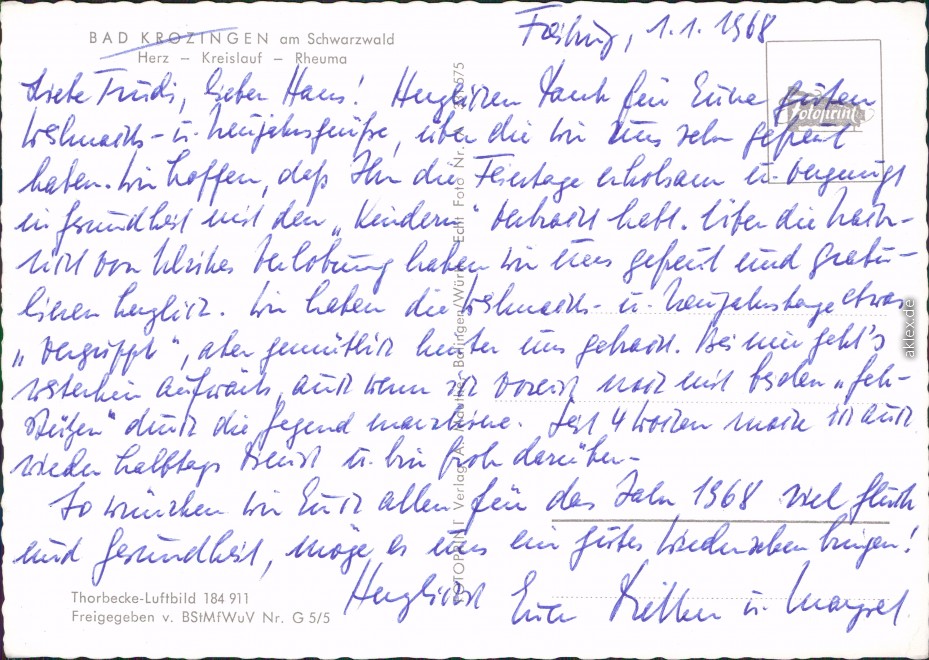 BAD KROZINGEN am Schwarzwald
Herz – Kreislauf – Rheuma
Freiburg, 1.1.1968
Liebe Trudi, lieber Hans! Herzlichen Dank für Eure guten
Weihnachts- u. Neujahrsgrüße, über die wir uns sehr gefreut
haben. Wir hoffen, daß Ihr die Feiertage erholsam u. vergnügt
in Gesundheit mit den „Kindern" verbracht habt. Über die Nach-
richt von Ulrikes Verlobung haben wir uns gefreut und gratu-
lieren herzlich. Wir haben die Weihnachts- u. Neujahrstage etwas
„vergrippt", aber gemütlich hinter uns gebracht. Bei mir geht's
weiterhin aufwärts, auch wenn ich vorerst noch mit beiden „Geh-
stützen" durch die Gegend marschiere. Seit 4 Wochen mache ich auch
wieder halbtags Dienst u. bin froh darüber –
So wünschen wir Euch allen für das Jahr 1968 viel Glück
und Gesundheit, möge es uns ein gutes Wiedersehen bringen!
Herzlichst
Eure u. Margret
Thorbecke-Luftbild 184 911
Freigegeben v. BStMfWuV Nr. G 5/5
FOTOPRINT Verlag Balingen/Württ. Echt Foto Nr.
Fotoprint
aklex.de